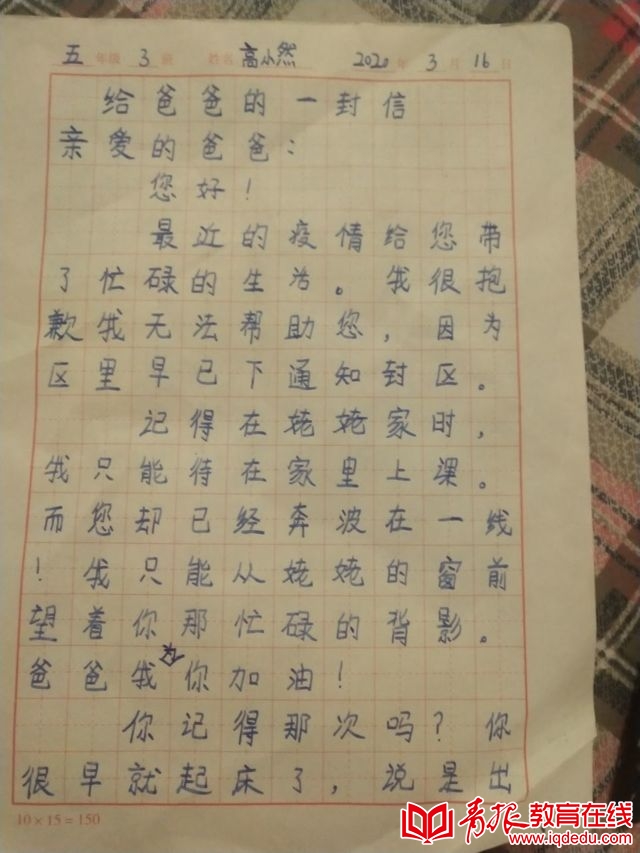 五年级 3班 姓名 高小然 2020年 3月 16日
给爸爸的一封信
亲爱的爸爸：
您好！
最近的疫情给您带
了忙碌的生活。我很抱
歉我无法帮助您，因为
区里早已下通知封区。
记得在姥姥家时，
我只能待在家里上课。
而您却已经奔波在一线
！我只能从姥姥的窗前
望着你那忙碌的背影。
爸爸我为你加油！
你记得那次吗？你
很早就起床了，说是出
10×15=150
青报教育在线
www.iqdedu.com